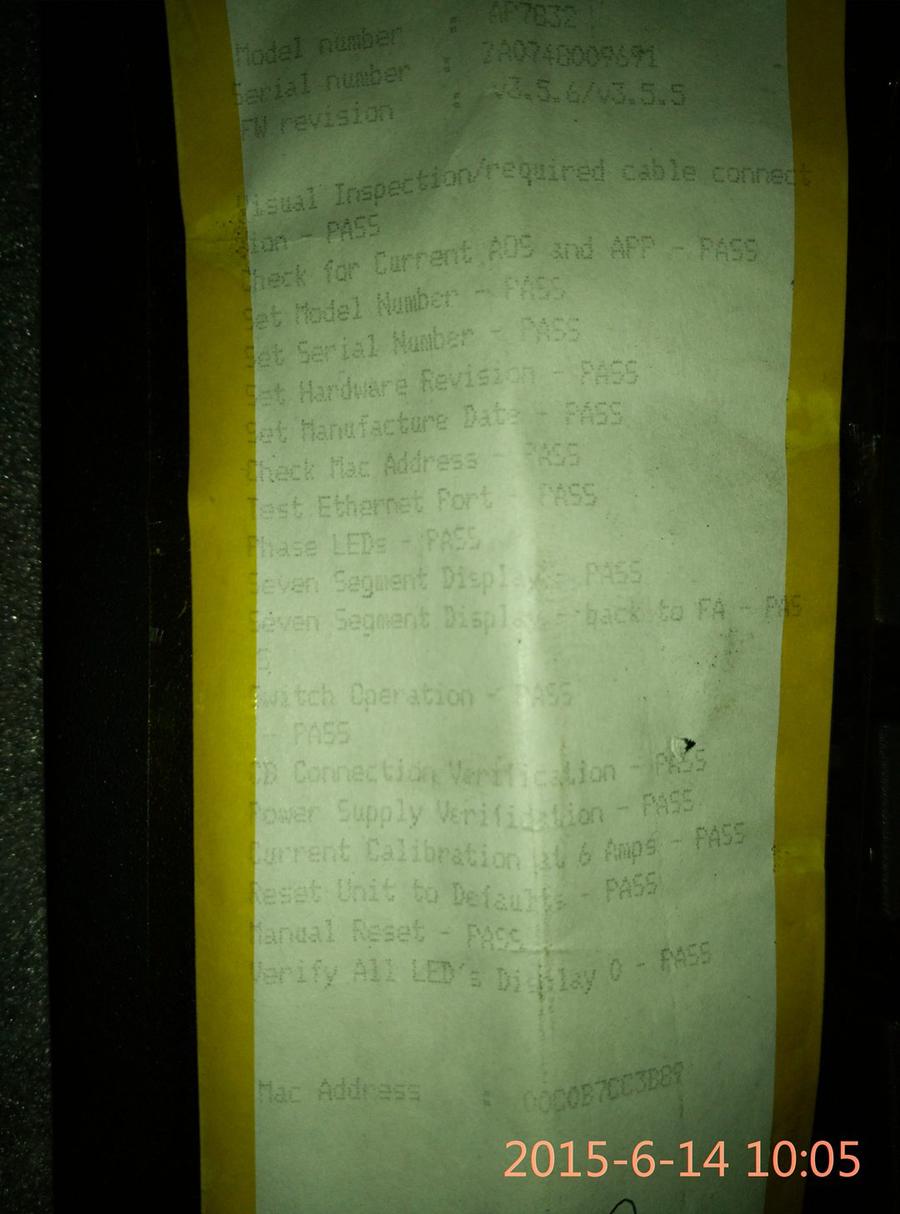 Model number : AP7832
Serial number : ZA0740009691
FW revision : v3.5.6/v3.5.5
Visual Inspection/required cable connect
ion - PASS
Check for Current AOS and APP - PASS
Set Model Number - PASS
Set Serial Number - PASS
Set Hardware Revision - PASS
Set Manufacture Date - PASS
Check Mac Address - PASS
Test Ethernet Port - PASS
Phase LEDs - PASS
Seven Segment Display - PASS
Seven Segment Display - back to FA - PAS
S
Switch Operation - PASS
- PASS
CB Connection Verification - PASS
Power Supply Verification - PASS
Current Calibration at 6 Amps - PASS
Reset Unit to Defaults - PASS
Manual Reset - PASS
Verify All LED's Display 0 - PASS
Mac Address : 00C0B7CC3B89
2015-6-14 10:05